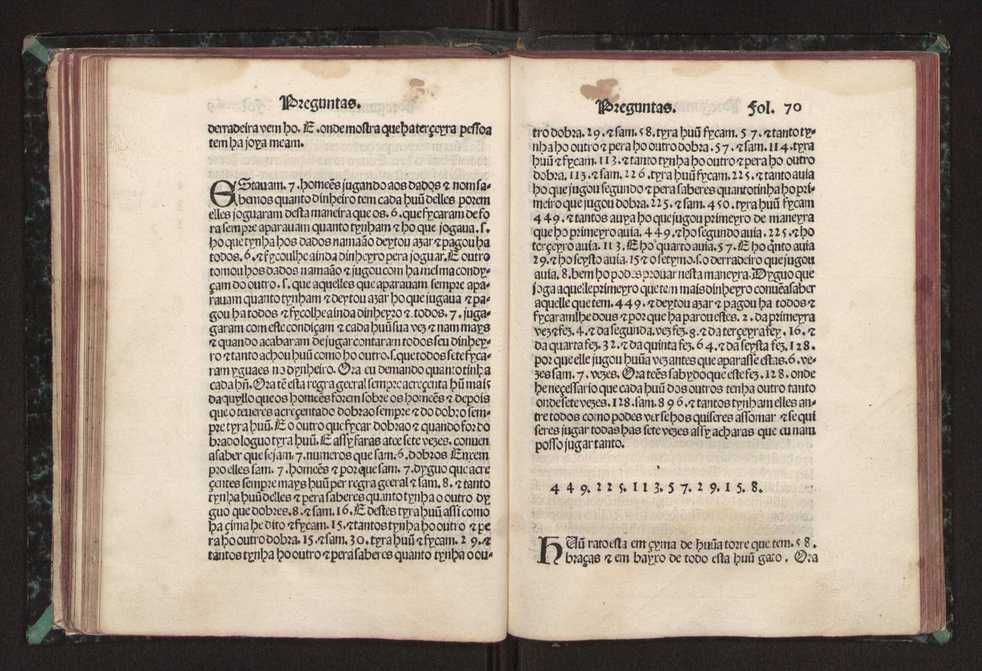 Preguntas.
derradeira vem ho. E. onde mostra que ha terçeyra pessoa
tem ha joya meam.
EStauam. 7. homeẽs jugando aos dados ⁊ nom sa-
bemos quanto dinheiro tem cada huũ delles porem
elles joguaram desta maneira que os. 6. que fycaram de fo
ra sempre aparauam quanto tynham ⁊ ho que jogaua. s.
ho que tynha hos dados na maão deytou azar ⁊ pagou ha
todos. 6. ⁊ fycoulhe ainda dinheyro pera joguar. E outro
tomou hos dados na maão ⁊ jugou com ha mesma condy-
çam do outro. s. que aquelles que aparauam sempre apa-
rauam quanto tynham ⁊ deytou azar ho que jugaua ⁊ pa-
gou ha todos ⁊ fycolhe ainda dinheyro ⁊ todos. 7. juga-
garam com este condiçam ⁊ cada huũ sua vez ⁊ nam mays
⁊ quando acabaram de jugar contaram todos seu dinhey-
ro ⁊ tanto achou huũ como ho outro. s. que todos sete fyca-
ram yguaes no dynheiro. Ora eu demando quanto tinha
cada hũ. Ora tẽ esta regra geeral sempre acreçenta hũ mais
da quyllo que os homeẽs forem sobre os homeẽs ⁊ depois
que o teueres acreçentado dobra o sempre ⁊ do dobro sem-
pre tyra huũ. E o outro que fycar dobra o ⁊ quando for do
brado loguo tyra huũ. E assy faras atee sete vezes. conuen
a saber que sejam. 7. numeros que sam. 6. dobros Enxem
pro elles sam. 7. homeẽs ⁊ por que sam. 7. dyguo que acre
çentes sempre mays huũ per regra geeral ⁊ sam. 8. ⁊ tanto
tynha huũ delles ⁊ pera saberes quanto tynha o outro dy
guo que dobres. 8. ⁊ sam. 16. E destes tyra huũ assi como
ha çima he dito ⁊ fycam. 15. ⁊ tantos tynha ho outro ⁊ pe
ra ho outro dobra. 15. ⁊ sam. 30. tyra huũ ⁊ fycam. 29. ⁊
tantos tynha ho outro ⁊ pera saberes quanto tynha o ou-
Preguntas. Fol. 70
tro dobra. 29. ⁊ sam. 58. tyra huũ fycam. 57. ⁊ tanto ty-
nha ho outro ⁊ pera ho outro dobra. 57. ⁊ sam. 114. tyra
huũ ⁊ fycam. 113. ⁊ tanto tynha ho outro ⁊ pera ho outro
dobra. 113. ⁊ sam. 226. tyra huũ fycam. 225. ⁊ tanto auia
ho que jugou segundo ⁊ pera saberes quanto tinha ho pri-
meiro que jugou dobra. 225. ⁊ sam. 450. tyra huũ fycam
449. ⁊ tantos auya ho que jugou primeyro de maneyra
que ho primeyro auia. 449. ⁊ ho segundo auia. 225. ⁊ ho
terçeyro auia. 113. E ho quarto auia. 57. E ho q̃nto auia
29. ⁊ ho seysto auia. 15 ⁊ o setymo. s. o derradeiro que jugou
auia. 8. bem ho podes prouar nesta maneyra. Dyguo que
joga aquelle primeyro que tem mais dinheyro conuẽ a saber
aquelle que tem. 449. ⁊ deytou azar ⁊ pagou ha todos ⁊
fycaramlhe dous ⁊ por que ha parou estes. 2. da primeyra
vez ⁊ fez. 4. ⁊ da segunda. vez fez. 8. ⁊ da terçeyra fey. 16. ⁊
da quarta fez. 32. ⁊ da quinta fez. 64. ⁊ da seysta fez. 128.
por que elle jugou huũa vez antes que aparasse estas. 6. ve-
zes sam. 7. vezes. Ora teẽs sabydo que este fez. 128. onde
he necessario que cada huũ dos outros tenha outro tanto
onde sete vezes. 128. sam. 896. ⁊ tantos tynham elles an-
tre todos como podes ver se hos quiseres assomar ⁊ se qui
seres jugar todas has sete vezes assy acharas que eu nam
posso jugar tanto.
449. 225. 113. 57. 29. 15. 8.
HUũ rato esta em çyma de huũa torre que tem. 58.
braças ⁊ em bayxo de todo esta huũ gato. Ora